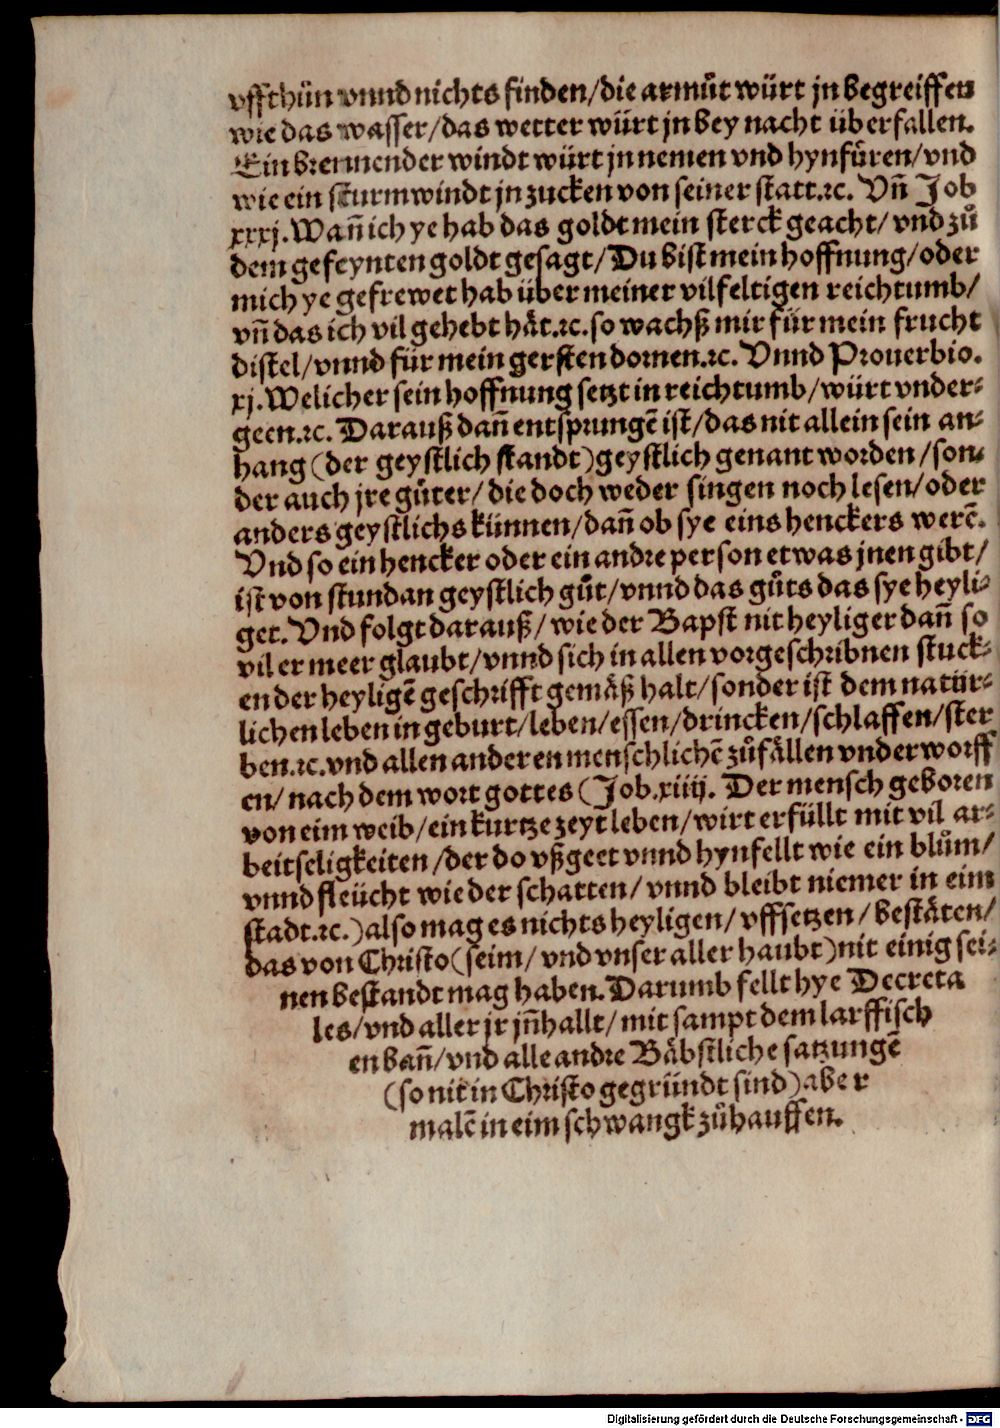 vffthůn vnnd nichts finden/die armůt würt jn begreiffen
wie das wasser/das wetter würt jn bey nacht überfallen.
Ein brennender windt würt jn nemen vnd hynfüren/vnd
wie ein sturmwindt jn zucken von seiner statt.ꝛc. Vñ Job
xxxj. Wañ ich ye hab das goldt mein sterck geacht/ vnd zů
dem gefeynten goldt gesagt/ Du bist mein hoffnung/oder
mich ye gefrewet hab über meiner vilfeltigen reichtumb/
vñ das ich vil gehebt hät.ꝛc.so wachß mir für mein frucht
distel/vnnd für mein gersten dornen.ꝛc. Vnnd Prouerbio.
xj. Welicher sein hoffnung setzt in reichtumb/würt vnder⸗
geen.ꝛc. Darauß dañ entsprungẽ ist/das nit allein sein an⸗
hang (der geystlich standt) geystlich genant worden/son⸗
der auch jre gůter/ die doch weder singen noch lesen/oder
anders geystlichs künnen/dañ ob sye eins henckers werẽ.
Vnd so ein hencker oder ein andre person etwas jnen gibt/
ist von stundan geystlich gůt/vnnd das gůts das sye heyli⸗
get. Vnd folgt darauß/ wie der Bapst nit heyliger dañ so
vil er meer glaubt/vnnd sich in allen vorgeschribnen stuck⸗
en der heyligẽ geschrifft gemäß halt/sonder ist dem natür⸗
lichen leben in geburt/leben/essen/drincken/schlaffen/ster
ben.ꝛc.vnd allen anderen menschlichẽ zůfällen vnderworff
en/ nach dem wort gottes (Job.xiiij. Der mensch geboren
von eim weib/ein kurtze zeyt leben/wirt erfüllt mit vil ar⸗
beitseligkeiten/der do vßgeet vnnd hynfellt wie ein blům/
vnnd fleücht wie der schatten/ vnnd bleibt niemer in eim
stadt.ꝛc.) also mag es nichts heyligen/ vffsetzen/ bestäten/
das von Christo (seim/ vnd vnser aller haubt) nit einig sei⸗
nen bestandt mag haben. Darumb fellt hye Decreta
les/vnd aller jr jñhallt/ mit sampt dem larffisch
en bañ/vnd alle andre Bäbstliche satzungẽ
(so nit in Christo gegründt sind) aber
malẽ in eim schwangk zůhauffen.
Digitalisierung gefördert durch die Deutsche Forschungsgemeinschaft - DFG